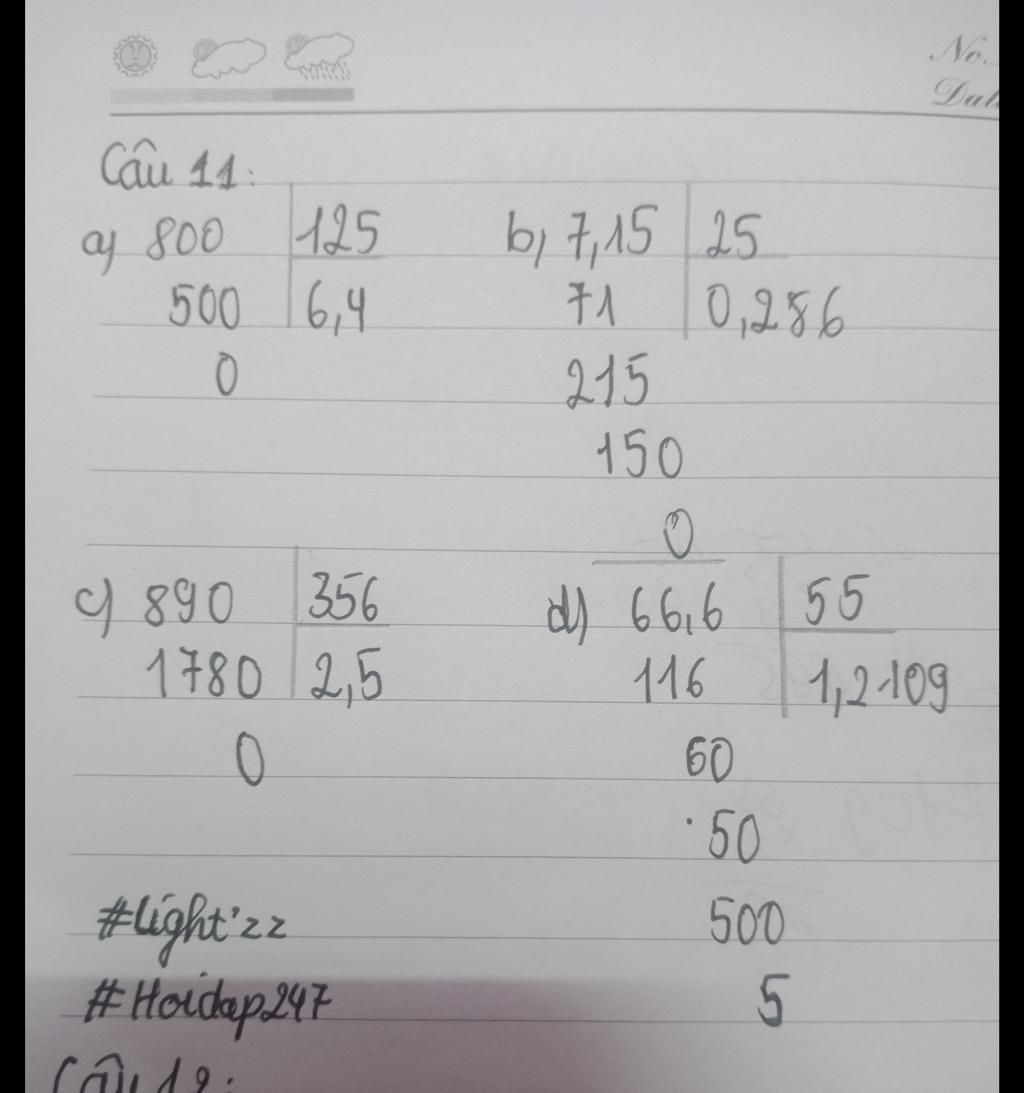 No.
Dat
Câu 11:
a) 800 125 b, 7,15 25
500 6,4 71 0,286
0 215
150
0
c) 890 356 d) 66,6 55
1780 2,5 116 1,2109
0 60
50
#Light'zz 500
#Hoidap247 5
Câu 12: